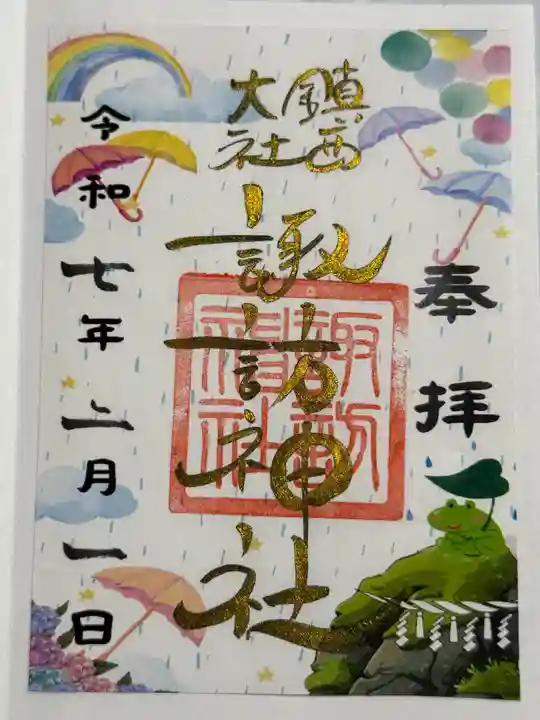 奉拝
鎮西
大社
諏訪神社
諏訪
神社
令和七年六月一日